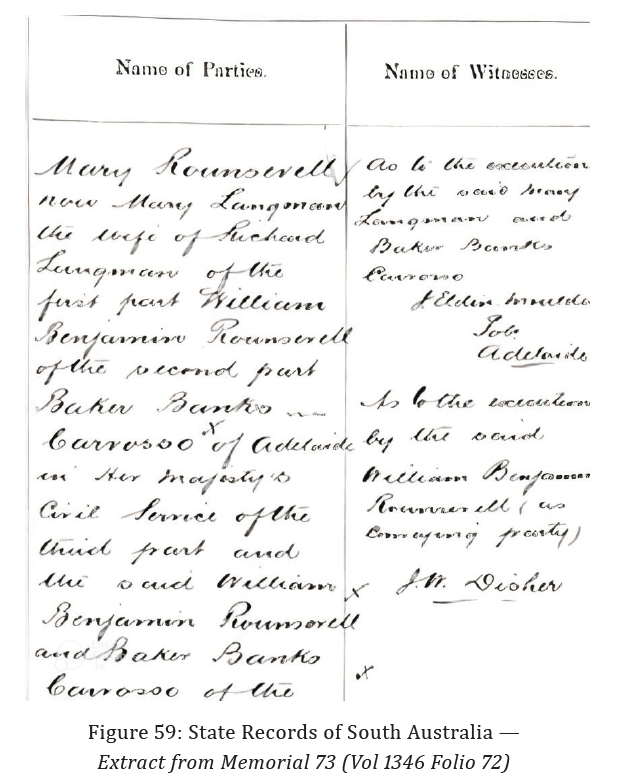 Name of Parties.
Name of Witnesses.
Mary Rounsevell
now Mary Langman
the wife of Richard
Langman of the
first part William
Benjamin Rounsevell
of the second part
Baker Banks
Carrosso x of Adelaide
in Her Majesty's
Civil Service of the
third part and
the said William
Benjamin Rounsevell
and Baker Banks
Carrosso of the
As to the execution
by the said Mary
Langman and
Baker Banks
Carrosso
J Eldin Moulde
Adelaide
As to the execution
by the said
William Benjamin
Rounsevell (as
conveying party)
x J.W. Disher
x
Figure 59: State Records of South Australia —
Extract from Memorial 73 (Vol 1346 Folio 72)